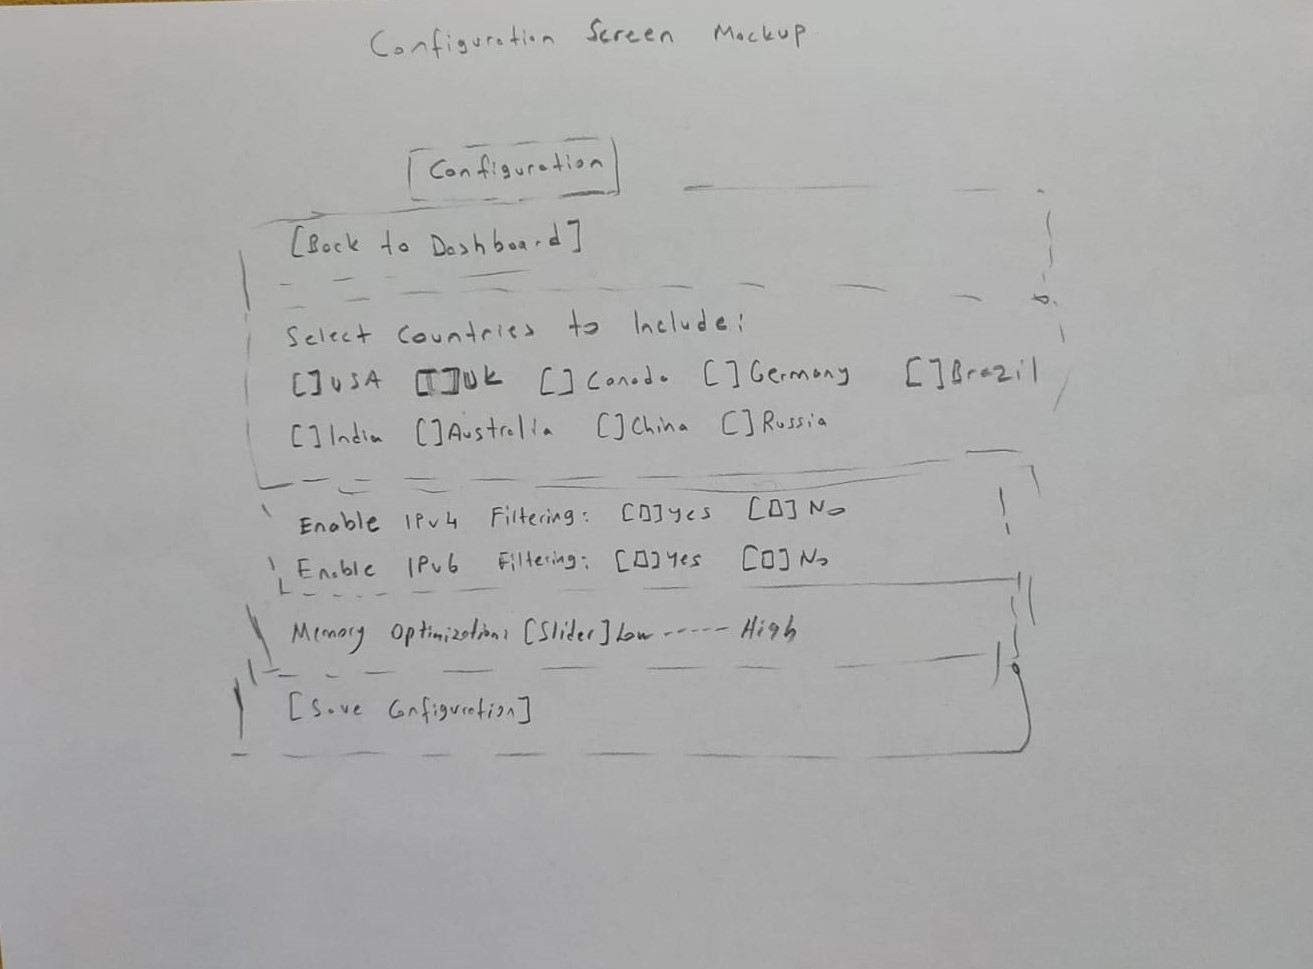 Configuration Screen Mockup
Configuration
[Back to Dashboard]
Select Countries to Include:
[] USA [] UK [] Canada [] Germany [] Brazil
[] India [] Australia [] China [] Russia
Enable IPv4 Filtering: [□] Yes [□] No
Enable IPv6 Filtering: [□] Yes [□] No
Memory Optimization: [Slider] Low ----- High
[Save Configuration]